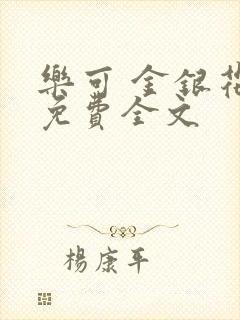 樂可 金銀花
免費全文
楊康平